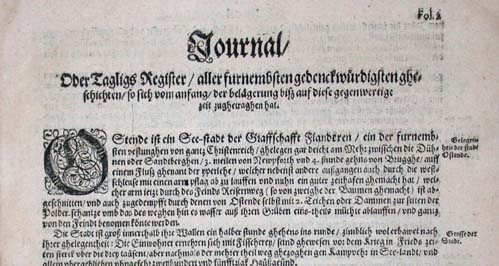 Fol. 2
Journal/
Oder Tagligs Register / aller furnembsten gedenckwürdigsten ghe-
schichten / so sich vom anfang / der belägerung biß auf diese gegenwertige
zeit zugetraghen hat.
OStende ist ein See-stadt der Graffschafft Flandren / ein der furnemb-
sten vestunghen von gantz Christenreich / ghelegen gar deicht am Mehr zwischen die Dün-
nen oder Sandberghen / 3. meilen von Newporth und 4. stunde gehns von Brugghe / auff
einem Fluß ghenant der yperlche / welcher nebenst andere außgangen auch durch die west-
schleuse mit einen arm pflag ab zu lauffen und nuhn ein guter zeithafen ghemacht hat / wel-
cher arm jetzt durch des Feinds Keiserweg (so von zweighe der Baumen ghemacht) ist ab-
geschnitten / und auch zugedempfft durch denen von Ostende selbst mit 2. Teichen oder Dammen zur seiten der
Polder-schantze umb das des weghen hin es wasser auß ihren Grüben eins-theils müchte ablauffen / und gantz
von den Feindt benomen könte werden.
Die Stadt ist groß innerhalb ihr Wallen ein halber stunde ghehens ins runde / zimblich wol erbawet nach
ihrer ghelegenheit: Die Einwohner ernehren sich mit Fischerey / sind ghewesen vor dem Krieg in Frieds zei-
ten sterck uber die tapffern / aber nachmals der mehrer theil weg ghezoghen gen Kampvehr in See-landt / und
Gelegen-
heit der stadt
Ostende.
Grosse der
Stadt.